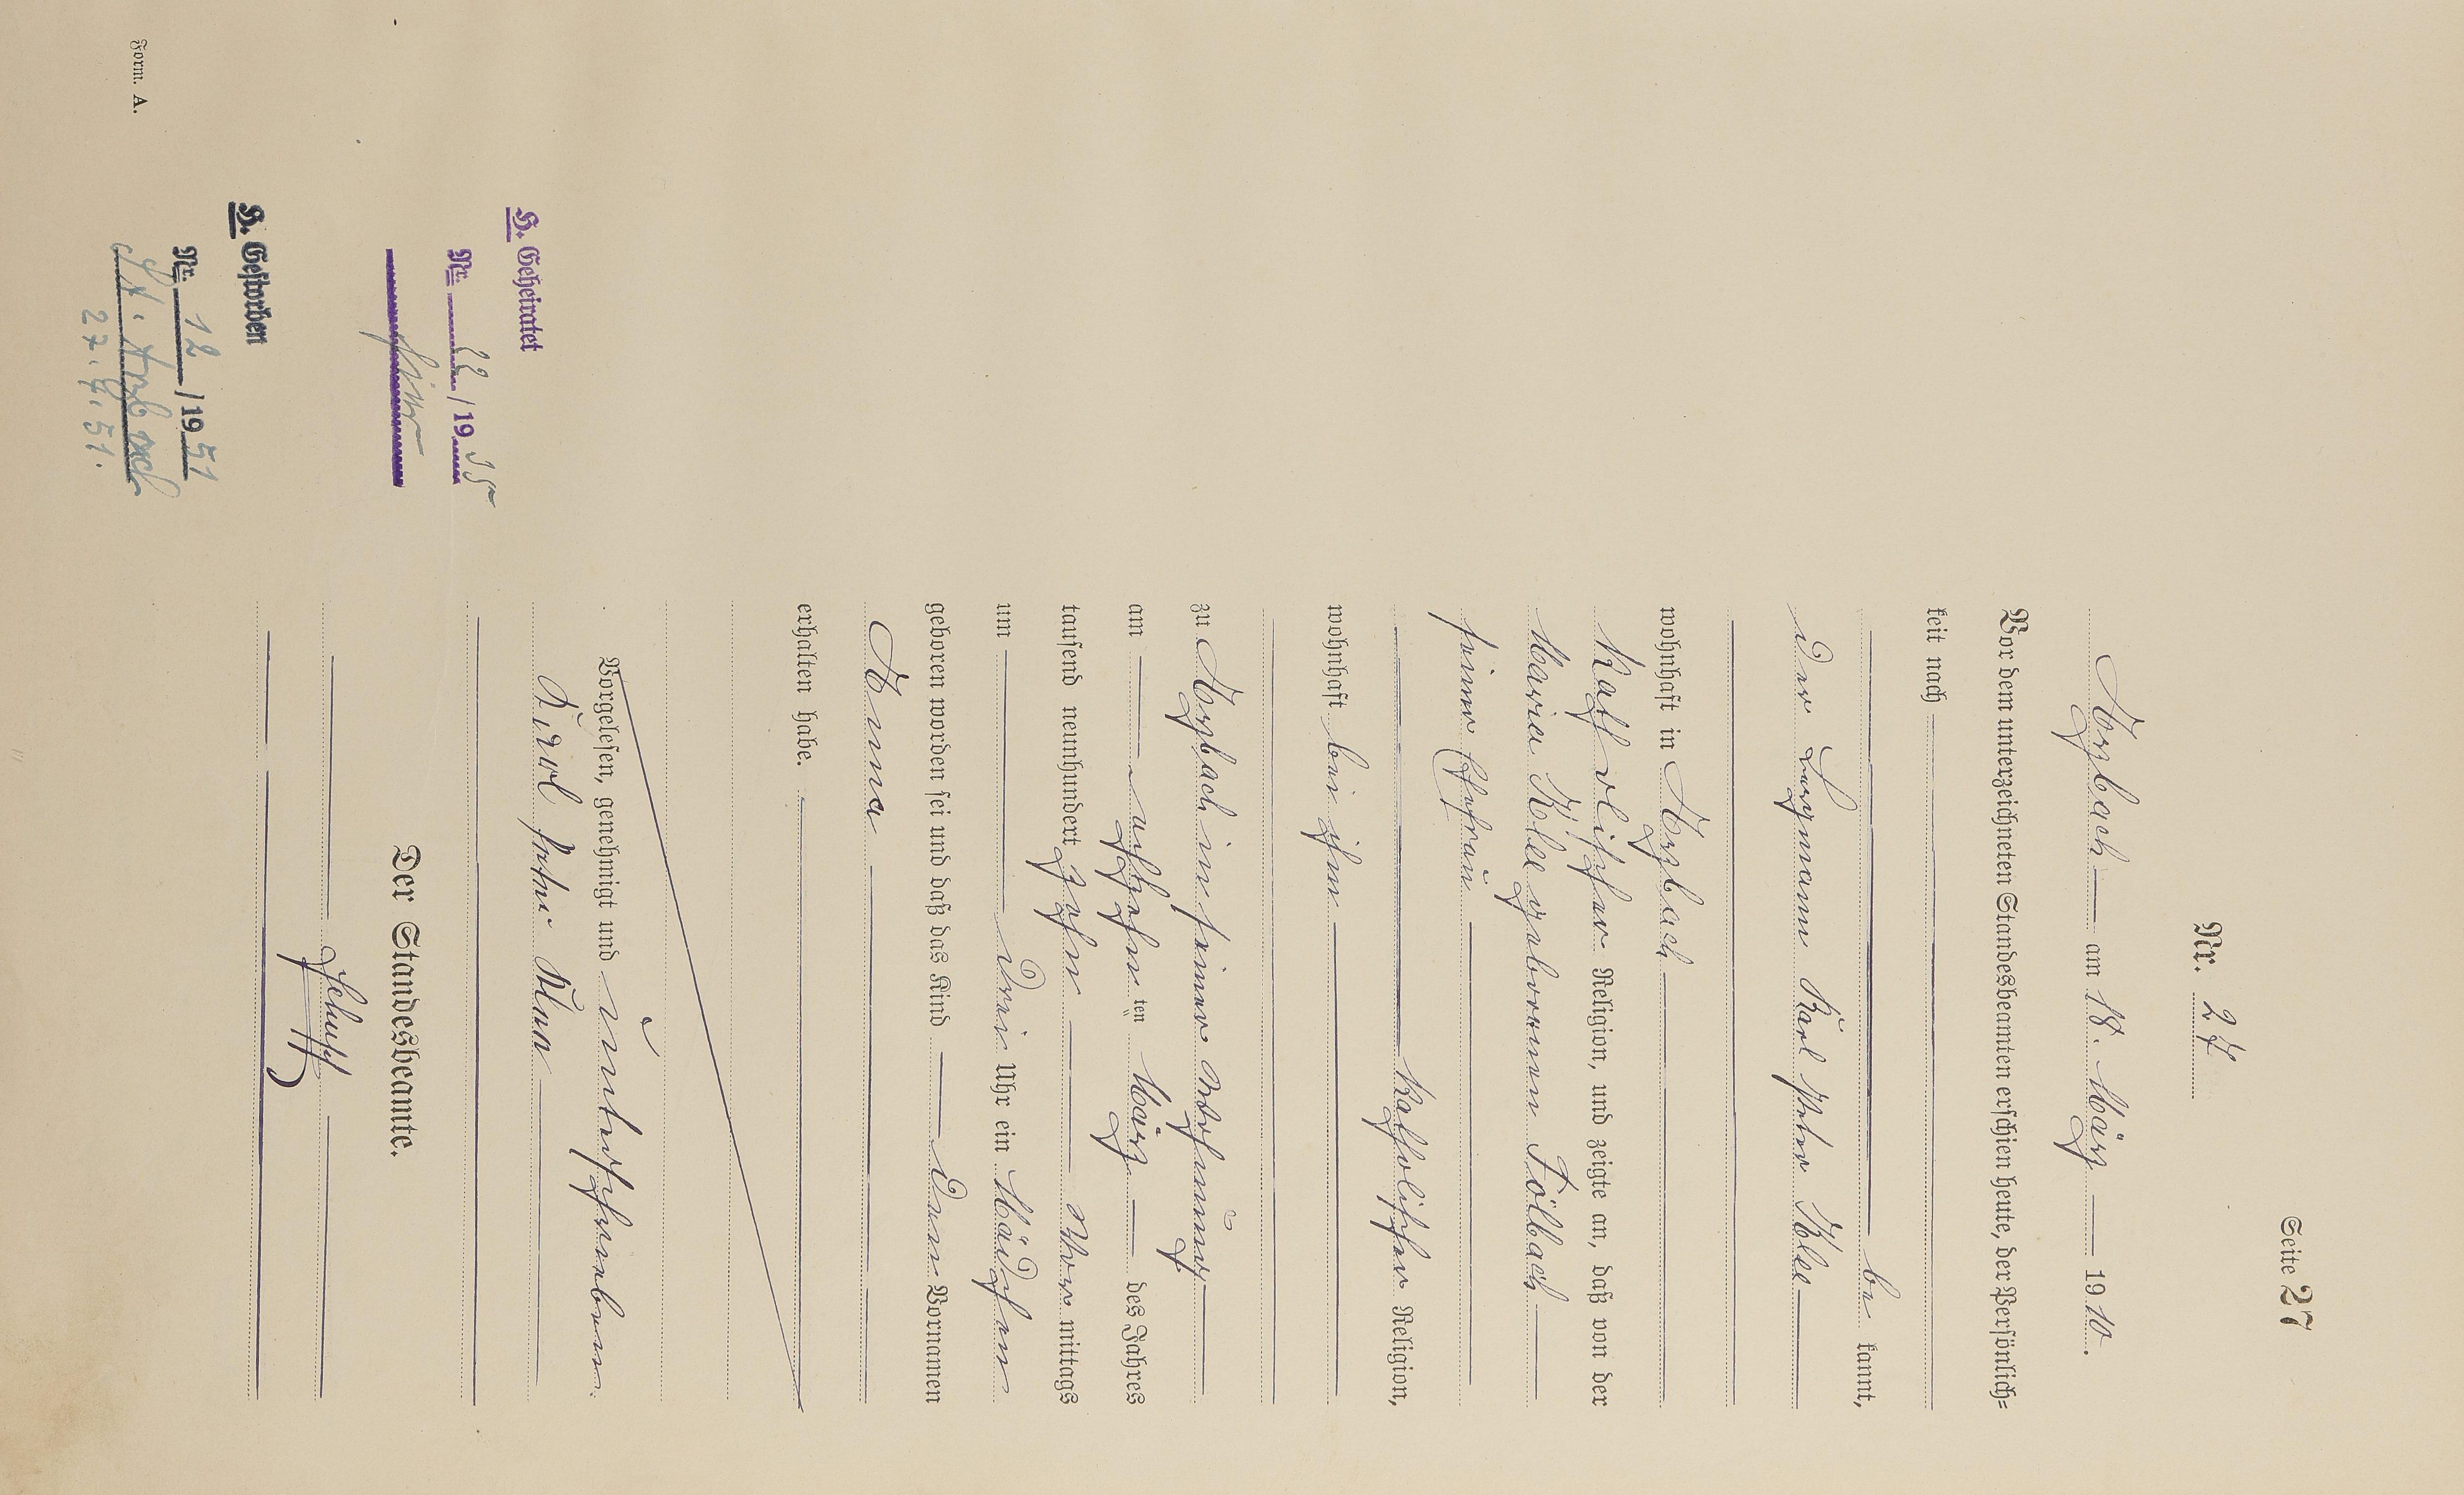 Seite 27
Nr. 27
Arzbach am 18. März 1910.
Vor dem unterzeichneten Standesbeamten erschien heute, der Persönlich=
keit nach
be kannt,
der Bergmann Karl Peter Klee
wohnhaft in Arzbach
katholischer Religion, und zeigte an, daß von der
Maria Klee geborenen Fölbach
seiner Ehefrau
katholischer Religion,
wohnhaft bei ihm
zu Arzbach in seiner Wohnung
am achtzehn ten März des Jahres
tausend neunhundert zehn Vor mittags
um drei Uhr ein Mädchen
geboren worden sei und daß das Kind den Vornamen
Anna
erhalten habe.
Vorgelesen, genehmigt und unterschrieben.
Karl Peter Klee
Der Standesbeamte.
Schupp
H. Geheiratet
Nr. 12 /19 35
hier
H. Gestorben
Nr. 12 /19 51
St. A. Arzbach
27.4.51.
Form. A.